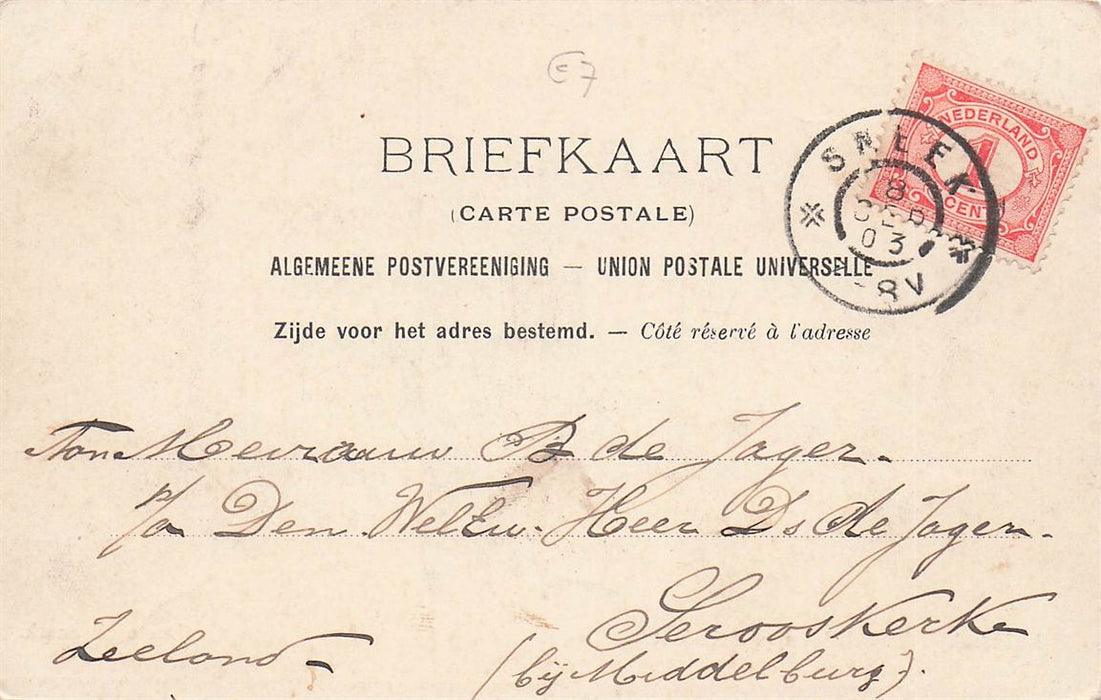 BRIEFKAART
(CARTE POSTALE)
ALGEMEENE POSTVEREENIGING — UNION POSTALE UNIVERSELLE
Zijde voor het adres bestemd. — Côté réservé à l'adresse
NEDERLAND
1
CENT
8
SEP
03
-8V
Mevraauw B de Jager.
p/a Den WelEw. Heer Ds de Jager.
Serooskerke
Zeeland (bij Middelburg).